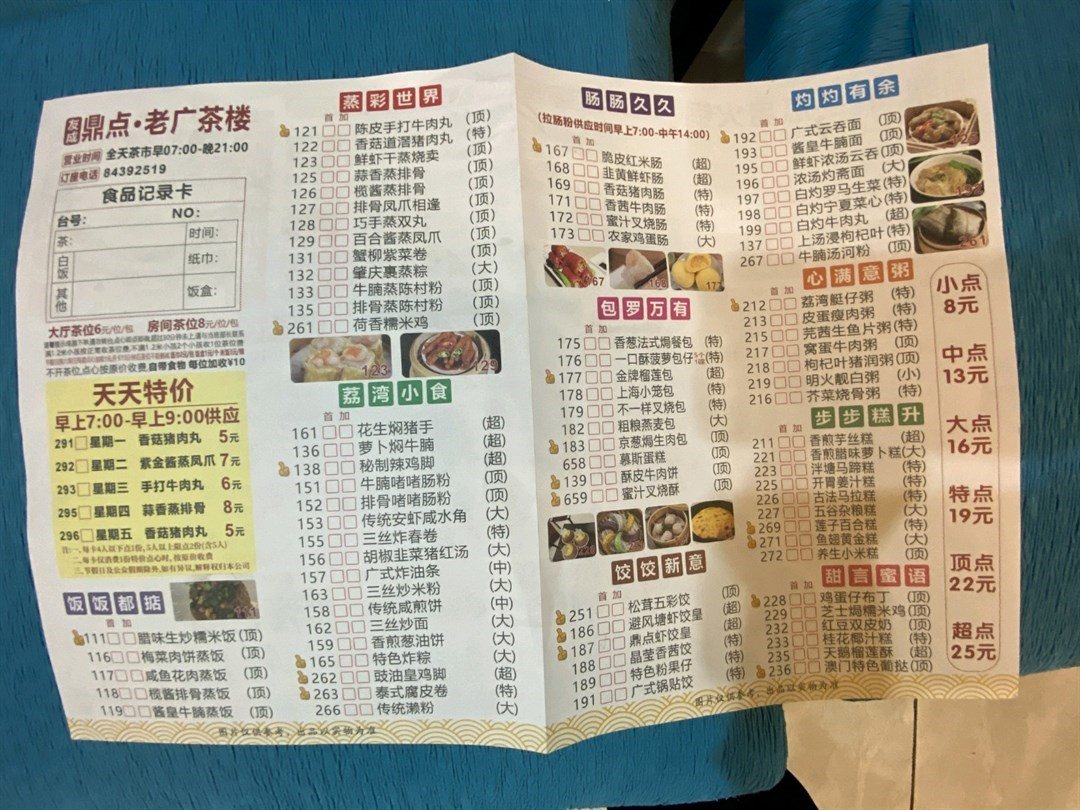 友诚
鼎点·老广茶楼
营业时间 全天茶市早07:00-晚21:00
订座电话 84392519
食品记录卡
台号: NO:
茶: 时间:
白饭 纸巾:
其他 饭盒:
大厅茶位6元/位/包 房间茶位8元/位/包
不开茶位,点心按原价收费,自带食物 每位加收¥10
天天特价
早上7:00-早上9:00供应
291 星期一 香菇猪肉丸 5元
292 星期二 紫金酱蒸凤爪 7元
293 星期三 手打牛肉丸 6元
295 星期四 蒜香蒸排骨 8元
296 星期五 香菇猪肉丸 5元
注:一、每卡4人以下点1份,5人以上限点2份(含5人)
二、每卡仅消费1份特价点心时,按原价收费
三、节假日及公众假期除外,如有另议,解释权归本公司
饭饭都掂
111
首 加
111 腊味生炒糯米饭(顶)
116 梅菜肉饼蒸饭 (顶)
117 咸鱼花肉蒸饭 (顶)
118 榄酱排骨蒸饭 (顶)
119 酱皇牛腩蒸饭 (顶)
蒸彩世界
首 加
121 陈皮手打牛肉丸 (顶)
122 香菇道滘猪肉丸 (特)
123 鲜虾干蒸烧卖 (顶)
125 蒜香蒸排骨 (顶)
126 榄酱蒸排骨 (顶)
127 排骨凤爪相逢 (顶)
128 巧手蒸双丸 (顶)
129 百合酱蒸凤爪 (顶)
131 蟹柳紫菜卷 (顶)
132 肇庆裹蒸粽 (大)
133 牛腩蒸陈村粉 (顶)
135 排骨蒸陈村粉 (顶)
261 荷香糯米鸡 (顶)
123 129
荔湾小食
首 加
161 花生焖猪手 (超)
136 萝卜焖牛腩 (超)
138 秘制辣鸡脚 (超)
151 牛腩啫啫肠粉 (顶)
152 排骨啫啫肠粉 (顶)
153 传统安虾咸水角 (大)
155 三丝炸春卷 (特)
156 胡椒韭菜猪红汤 (大)
157 广式炸油条 (中)
163 三丝炒米粉 (大)
158 传统咸煎饼 (中)
162 三丝炒面 (大)
159 香煎葱油饼 (大)
165 特色炸粽 (大)
262 豉油皇鸡脚 (超)
263 泰式腐皮卷 (特)
266 传统濑粉 (大)
图片仅供参考，出品以实物为准
肠肠久久
(拉肠粉供应时间早上7:00-中午14:00)
首 加
167 脆皮红米肠 (超)
168 韭黄鲜虾肠 (超)
169 香菇猪肉肠 (特)
171 香茜牛肉肠 (特)
172 蜜汁叉烧肠 (特)
173 农家鸡蛋肠 (大)
167 168 177
包罗万有
首 加
175 香葱法式焗餐包 (特)
176 一口酥菠萝包仔 (特)
177 金牌榴莲包 (超)
178 上海小笼包 (特)
179 不一样叉烧包 (特)
182 粗粮燕麦包 (大)
183 京葱焗生肉包 (特)
658 慕斯蛋糕 (顶)
139 酥皮牛肉饼 (顶)
659 蜜汁叉烧酥 (顶)
饺饺新意
首 加
251 松茸五彩饺 (顶)
186 避风塘虾饺皇 (超)
187 鼎点虾饺皇 (超)
188 晶莹香茜饺 (特)
189 特色粉果仔 (特)
191 广式锅贴饺 (特)
灼灼有余
首 加
192 广式云吞面 (顶)
193 酱皇牛腩面 (顶)
195 鲜虾浓汤云吞(顶)
196 浓汤灼斋面 (大)
197 白灼罗马生菜(特)
198 白灼宁夏菜心(特)
199 白灼牛肉丸 (超)
137 上汤浸枸杞叶(特)
267 牛腩汤河粉 (顶)
261
心满意粥
首 加
212 荔湾艇仔粥 (特)
213 皮蛋瘦肉粥 (特)
215 芫茜生鱼片粥(特)
217 窝蛋牛肉粥 (顶)
218 枸杞叶猪润粥(顶)
219 明火靓白粥 (小)
216 芥菜烧骨粥 (特)
步步糕升
首 加
211 香煎芋丝糕 (超)
221 香煎腊味萝卜糕(大)
223 泮塘马蹄糕 (特)
225 开胃姜汁糕 (特)
226 古法马拉糕 (特)
227 五谷杂粮糕 (大)
269 莲子百合糕 (特)
271 鱼翅黄金糕 (大)
272 养生小米糕 (顶)
甜言蜜语
首 加
228 鸡蛋仔布丁 (顶)
229 芝士焗糯米鸡(顶)
232 红豆双皮奶 (顶)
233 桂花椰汁糕 (特)
235 天鹅榴莲酥 (超)
236 澳门特色葡挞(顶)
图片仅供参考，出品以实物为准
小点
8元
中点
13元
大点
16元
特点
19元
顶点
22元
超点
25元